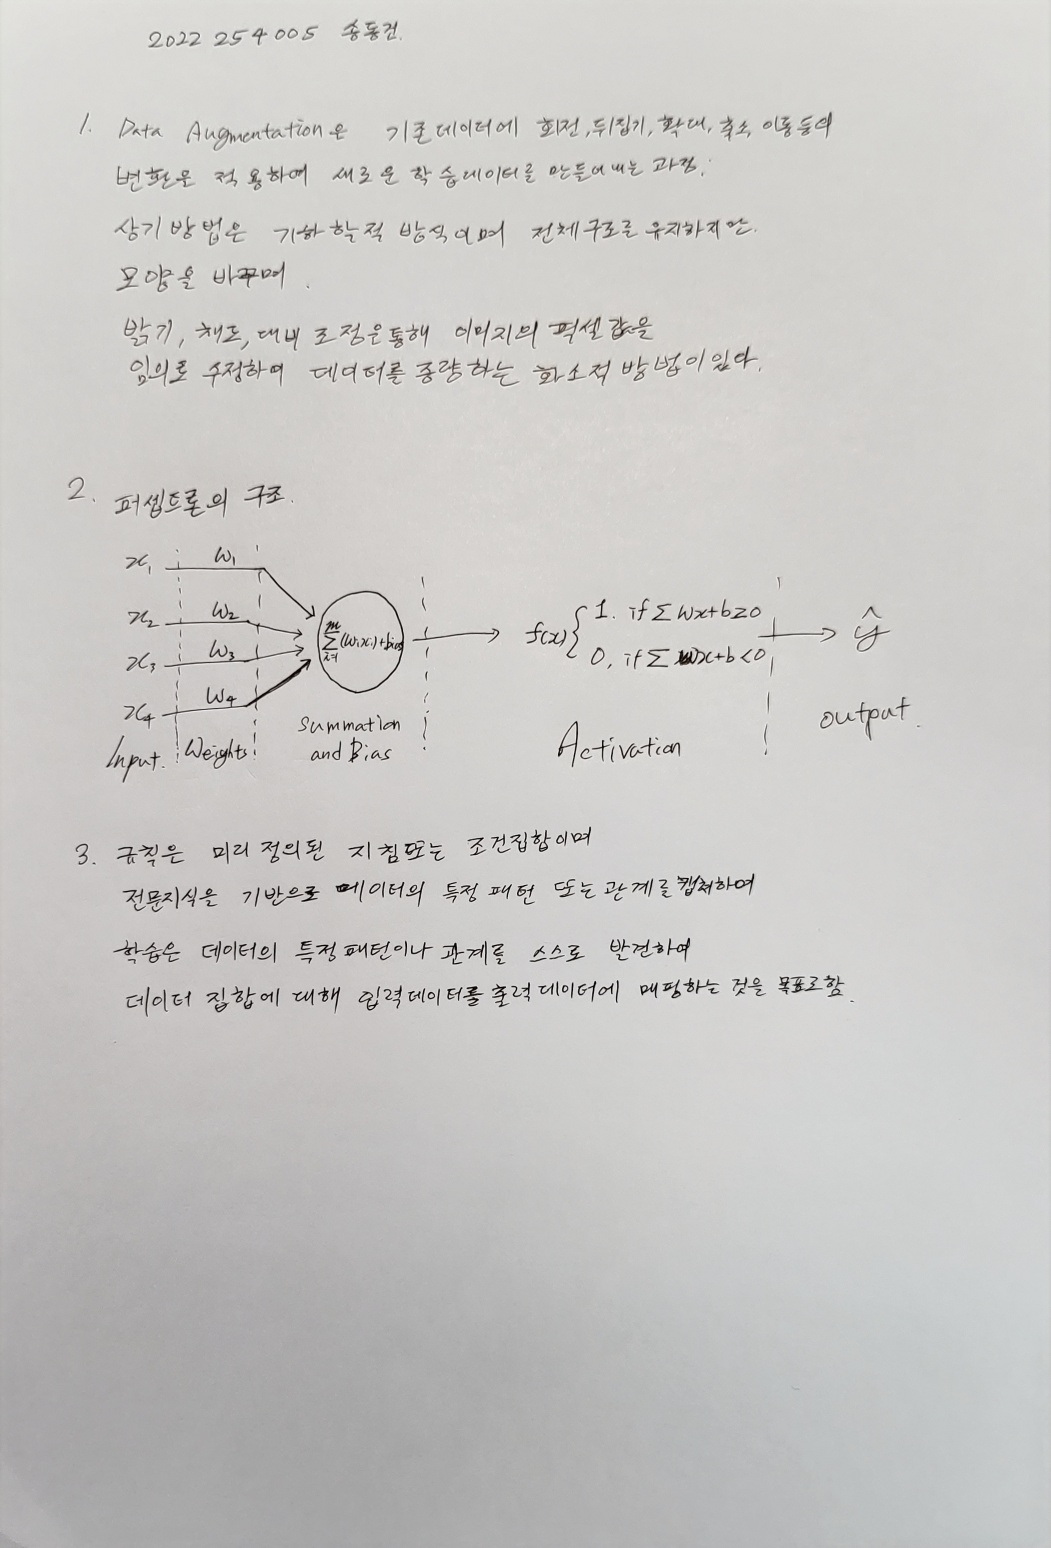 2022 254 005 송동건.
1. Data Augmentation은 기존데이터에 회전, 뒤집기, 확대, 축소, 이동등의
변환을 적용하여 새로운 학습데이터를 만들어내는 과정.
상기 방법은 기하학적 방식이며 전체구조를 유지하지만.
모양을 바꾸며.
밝기, 채도, 대비 조정을통해 이미지의 픽셀값을
임의로 수정하여 데이터를 증량하는 화소적 방법이있다.
2. 퍼셉트론의 구조.
x₁ w₁
x₂ w₂
x₃ w₃
x₄ w₄
m
∑ (wᵢxᵢ)+bias
i=1
f(x) { 1. if ∑ wx+b≥0
0, if ∑ wx+b<0
ŷ
Input. Weights
Summation
and Bias
Activation
output.
3. 규칙은 미리 정의된 지침또는 조건집합이며
전문지식을 기반으로 데이터의 특정 패턴 또는 관계를 캡처하여
학습은 데이터의 특정패턴이나 관계를 스스로 발견하여
데이터 집합에 대해 입력데이터를 출력데이터에 매핑하는 것을 목표로함.